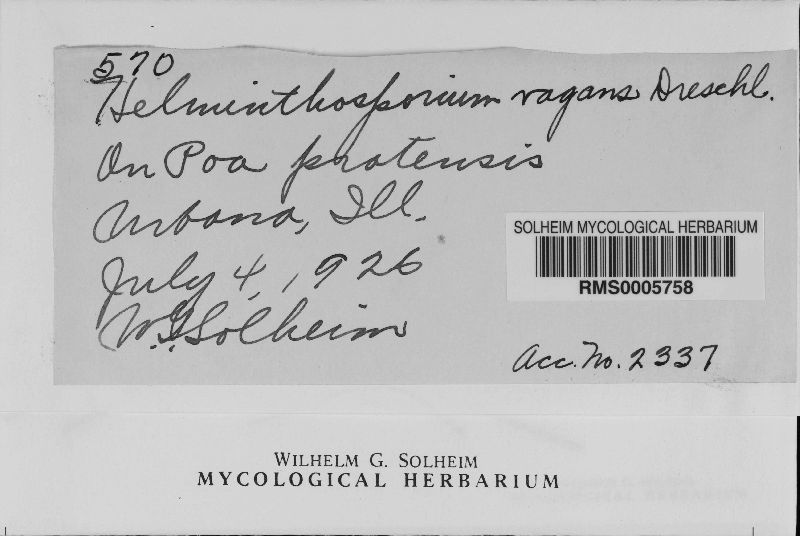 570
Helminthosporium vagans Dreschl.
On Poa pratensis
Urbana, Ill.
July 4, 1926
W.G. Solheim
SOLHEIM MYCOLOGICAL HERBARIUM
RMS0005758
Acc. No. 2337
WILHELM G. SOLHEIM
MYCOLOGICAL HERBARIUM